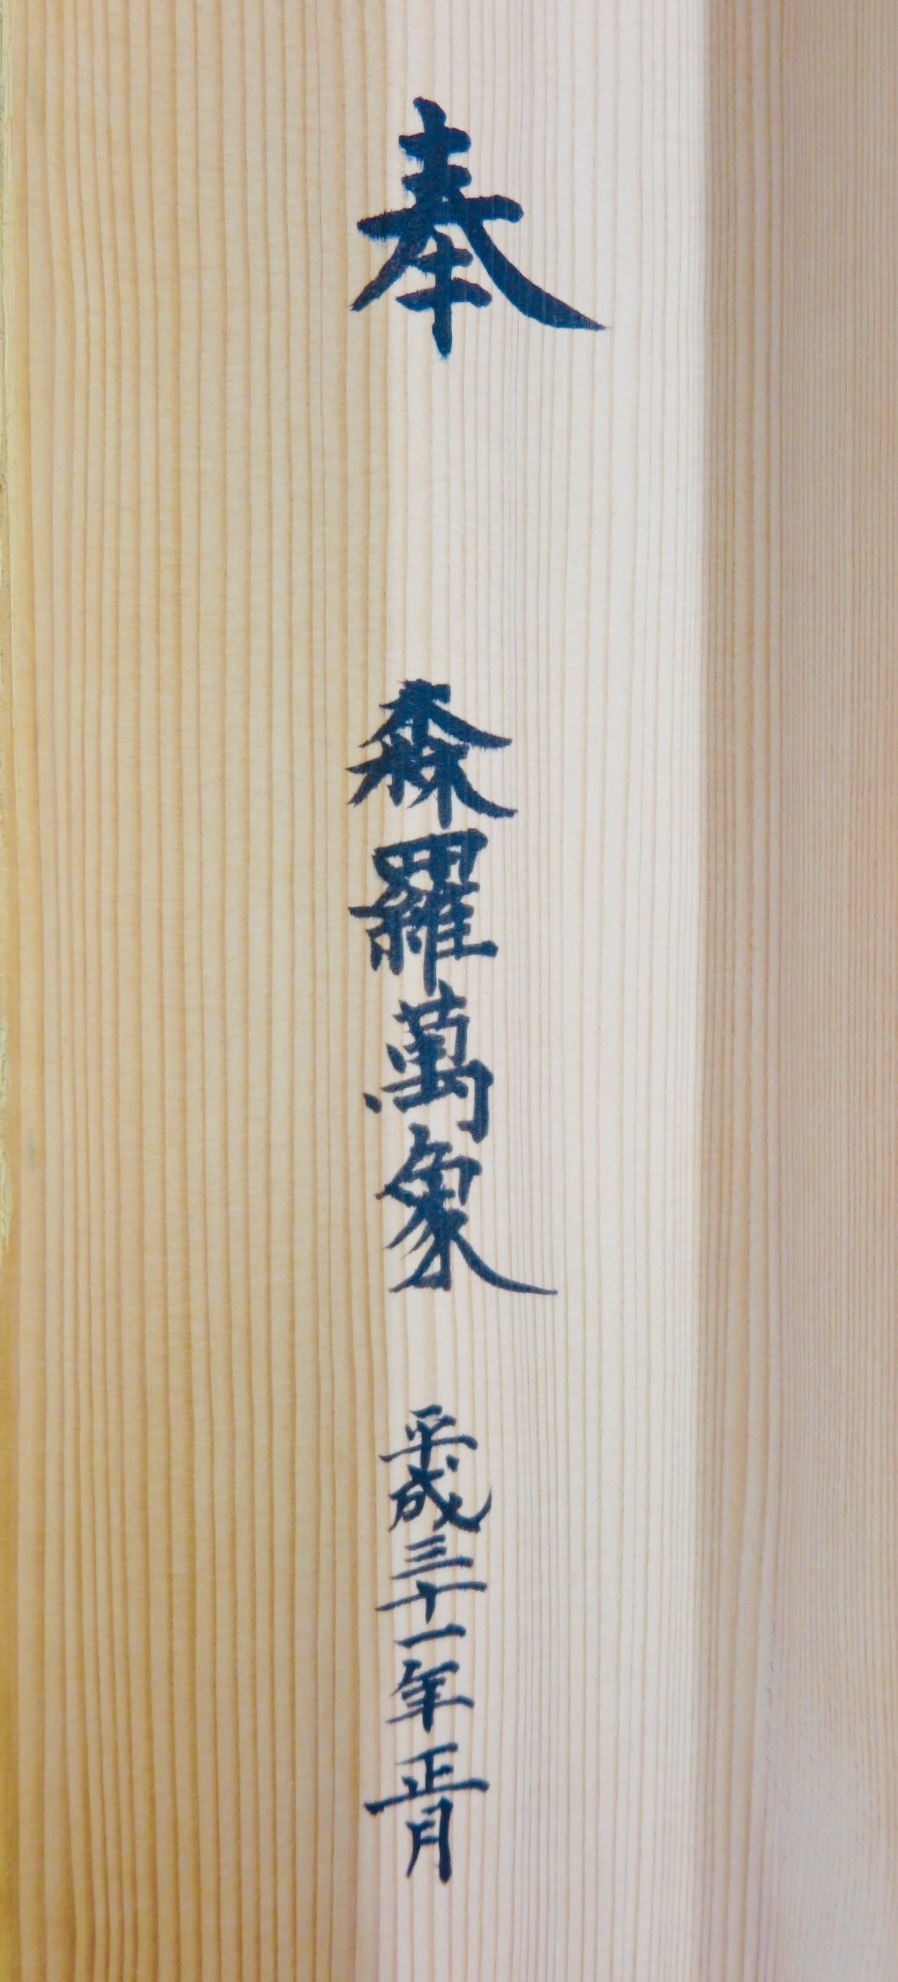 奉
森羅萬象
平成三十一年正月